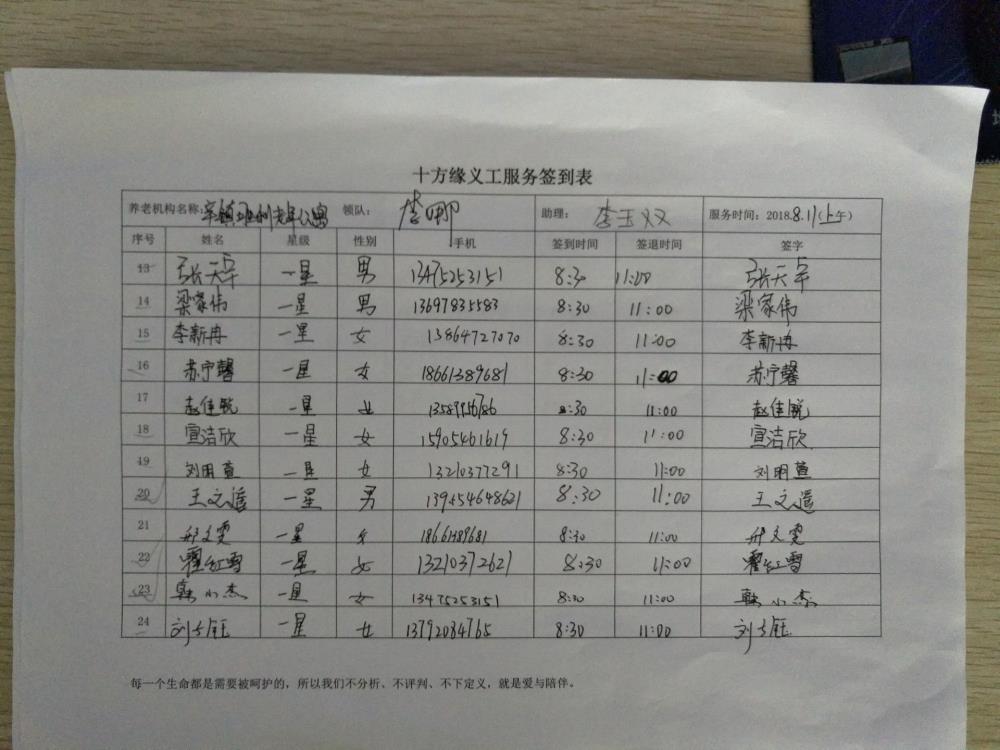 十方缘义工服务签到表
养老机构名称: 辛镇 老年公寓 领队: 李娜 助理: 李玉双 服务时间: 2018.8.11(上午)
序号 姓名 星级 性别 手机 签到时间 签退时间 签字
13 张天卓 一星 男 13475253151 8:30 11:00 张天卓
14 梁家伟 一星 男 13697835583 8:30 11:00 梁家伟
15 李新冉 一星 女 13864727070 8:30 11:00 李新冉
16 苏宁馨 一星 女 18661389681 8:30 11:00 苏宁馨
17 赵佳锐 一星 女 13589956786 8:30 11:00 赵佳锐
18 宣洁欣 一星 女 15905461619 8:30 11:00 宣洁欣
19 刘明萱 一星 女 13210377291 8:30 11:00 刘明萱
20 王文 一星 男 8:30 11:00 王文
21 郑文雯 一星 女 18661389681 8:30 11:00 郑文雯
22 翟红雪 一星 女 13210372621 8:30 11:00 翟红雪
23 韩小杰 一星 女 13475253151 8:30 11:00 韩小杰
24 刘 钰 一星 女 13792084765 8:30 11:00 刘 钰
每一个生命都是需要被呵护的，所以我们不分析、不评判、不下定义，就是爱与陪伴。